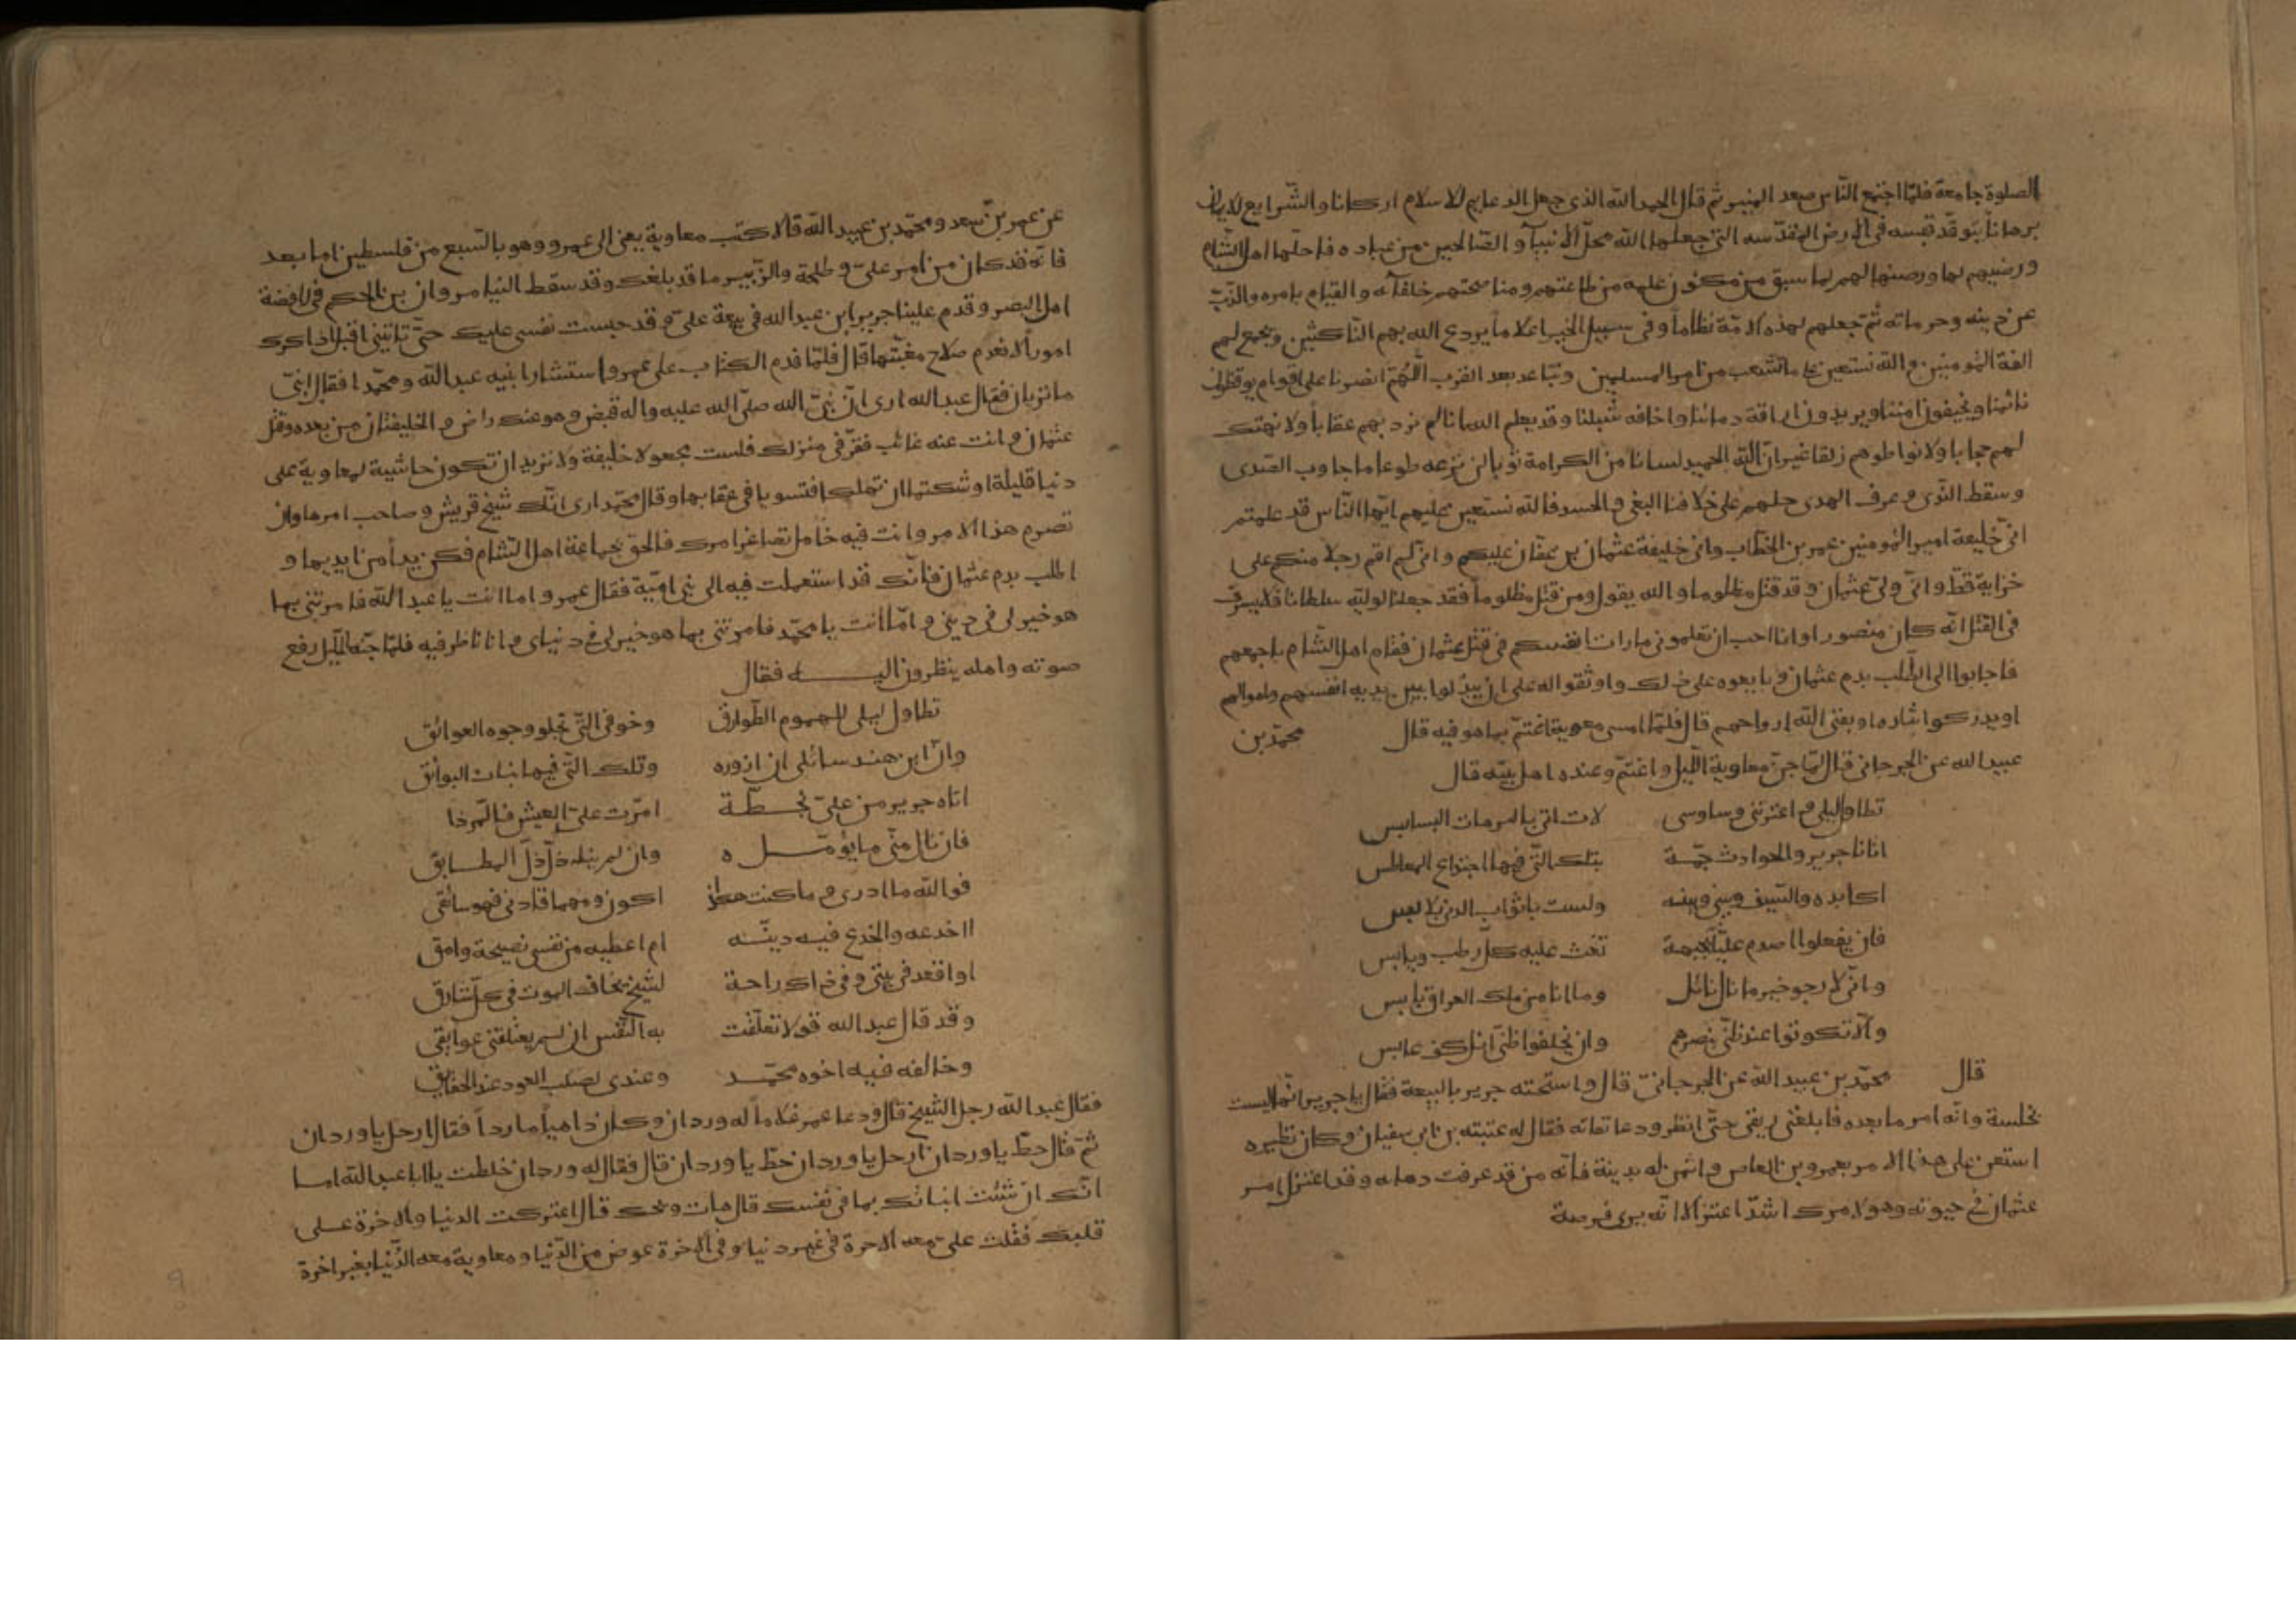 الصلوة جامعة فلمّا اجتمع النّاس صعد المنبر ثم قال الحمد لله الذى جعل الدعايم للاسلام اركانا والشّرايع للايمان
برهاناً يتوقّد قبسه فى الارض المقدّسه التى جعلها الله محلّ الانبيآ و الصّالحين من عباده فاحلّها اهل الشّام
ورضيهم لها ورضيها لهم لما سبق من مكنون علمه من طاعتهم ومناصحتهم خلفآئه والقيام بامره والذّبّ
عن دينه وحرماته ثم جعلهم لهذه الامّة نظاماً وفى سبيل الخير اعلاماً يردع الله بهم النّاكثين ويجمع لهم
الفة المؤمنين والله نستعين على ماتشعب من امر المسلمين وتباعد بعد القرب اللّهمّ انصرنا على اقوام يوقظون
نائمنا ويخيفون امننا ويريدون اراقة دمائنا واخافه سبيلنا وقد يعلم الله انا لم نرد بهم عقاباً ولا نهتك
لهم حجابا ولا نواطوهم زلقا غير ان الله الحميد لسانا من الكرامة ثوبا لن ننزعه طوعا ما جاوب الصّدى
وسقط النّدى و عرف الهدى حملهم على خلافنا البغى والحسد فالله نستعين عليهم ايّها النّاس قد علمتم
انّى خليفة امير المؤمنين عمر بن الخطّاب وانى خليفة عثمان بن عفّان عليكم وانى لم اقم رجلا منكم على
خزاية قطّ وانّى ولىّ عثمان وقد قتل مظلوما والله يقول ومن قتل مظلوماً فقد جعلنا لوليّه سلطانا فلا يسرف
فى القتل انّه كان منصورا وانا احب ان تعلمونى ما رات انفسكم فى قتل عثمان فقام اهل الشّام باجمعهم
فاجابوا الى الطّلب بدم عثمان و بايعوه على ذلك واوثقوا له على ان يبذلوا بين يديه انفسهم واموالهم
او يدركوا بثاره او يفنى الله ارواحهم قال فلمّا امسى معوية اغتمّ بما هو فيه قال محمّد بن
عبيدالله عن الجرجانى قال لمّا جنّ معاوية اللّيل واغتمّ وعنده اهل بيته قال
تطاول ليلى و اعترتنى وساوسى لات اتى بالترهات البسابس
اتانا جرير والحوادث جمّة بتلك التّى فيها اجتداع المعاطس
اكابده والسّيف بينى وبينه ولست باثواب الدنى بلابس
فان يفعلوا اصدم عليّا بجبهة تفث عليه كلّ رطب ويابس
وانّى لارجو خير ما نال نائل وما انا من ملك العراق بايس
والّا تكونوا عند ظنّى بنصرهم وان يخلفوا ظنّى اكن كف عابس
قال محمّد بن عبيد الله عن الجرجانىّ قال واستحثه جرير بالبيعة فقال يا جرير انّها ليست
بخلسة وانّه امر ما بعده فابلغنى ريقى حتّى انظر ودعا ثقاته فقال له عتبته بن ابى سفيان وكان نظيره
استعن على هذا الامر بعمرو بن العاص واثمن له بدينة فانّه من قد عرفت دهائه وقد اعتزل امر
عثمان فى حيوته وهو لامرك اشدّ اعتزالا انّه يرى فرصة
عن عمر بن سعد ومحمّد بن عبيد الله قالا كتب معاوية يعنى الى عمرو وهو بالسّبع من فلسطين اما بعد
فانّه قد كان من امر علىّ و طلحة والزّبير ما قد بلغك وقد سقط الينا مروان بن الحكم فى رافضة
اهل البصر وقدم علينا جرير ابن عبد الله فى بيعة علىّ وقد حبست نفسى عليك حتّى تاتينى اقبل اذاكرك
اموراً لا نعدم صلاح مغبّتها قال فلمّا قدم الكتاب على عمرو استشار ابنيه عبد الله ومحمّدا فقال ابنىّ
ما تريان فقال عبد الله ارى انّ نبىّ الله صلّى الله عليه واله قبض وهو عنك راض و الخليفتان من بعده وقتل
عثمان و انت عنه غائب فقرّ فى منزلك فلست مجعولا خليفة ولا تريد ان تكون حاشية لمعاوية على
دنيا قليلة اوشكتما ان تهلكا فتسويا فى عقابها وقال محمّد ارى انّك شيخ قريش وصاحب امرها وان
تصرم هذا الامر وانت فيه خامل تصاغر امرك فالحق بجماعة اهل الشّام فكن يداً من ايديها و
اطلب بدم عثمان فانّك قد استعملت فيه الى بنى اميّة فقال عمرو اما انت يا عبد الله فامرتنى بما
هو خير لى فى دينى و امّا انت يا محمّد فامرتنى بما هو خير لى فى دنياى و انا ناظر فيه فلمّا جنّه اللّيل رفع
صوته واهله ينظرون اليه فقال
تطاول ليلى للهموم الطّوارق وخوفى التّى تجلو وجوه العوائق
وانّ ابن هند سائلى ان ازوره وتلك التّى فيها بنات البوائق
اتاه جرير من علىّ بخطّة امرّت علىّ العيش
فان نال منّى ما يؤمّله وان لم ينله ذلّ ذلّ المطابق
فوالله ما ادرى و ما كنت هكذا اكون و مهما قادنى فهو سائقى
ااخدعه والخدع فيه دنيّه ام اعطيه من نفسى نصيحة وامق
او اقعد فى بيتى و فى ذاك راحة لشيخ يخاف الموت فى كلّ شارق
وقد قال عبد الله قولا تعلّقت به النّفس ان لم يعتلقنى عوايقى
وخالفه فيه اخوه محمّد وعندى لصلب العود عند الحقايق
فقال عبد الله رحل الشّيخ قال ودعا عمر غلاماً له وردان وكان داهياً مارداً فقال ارحل يا وردان
ثمّ قال حطّ يا وردان ارحل يا وردان حطّ يا وردان قال فقال له وردان خلطت يا ابا عبد الله اما
انّك ان شئت انباتك بما فى نفسك قال هات ويحك قال اعتركت الدنيا والاخرة على
قلبك فقلت علىّ معه الاخرة فى غير دنيا و فى الاخرة عوض من الدّنيا ومعاوية معه الدّنيا بغير اخرة